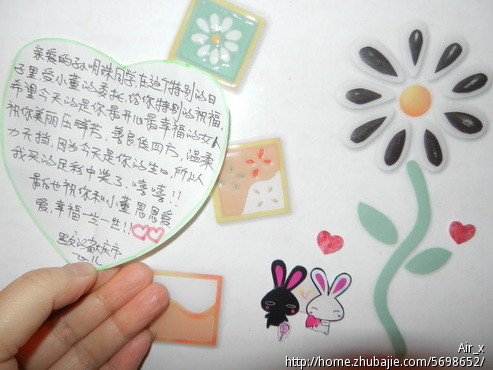 亲爱的孙明珠同学,在这个特别的日
子里,受小董的委托,给你特别的祝福,
希望今天的是你最开心最幸福的女人
祝你美丽压群芳,善良传四方,温柔
力无挡,因为今天是你的生日,所以
我买的足彩中奖了,"嘻嘻"!!
最后也祝你和小董恩恩爱
爱,幸福一生一世!!
黑龙江省大庆市
Air_x
http://home.zhubajie.com/5698652/